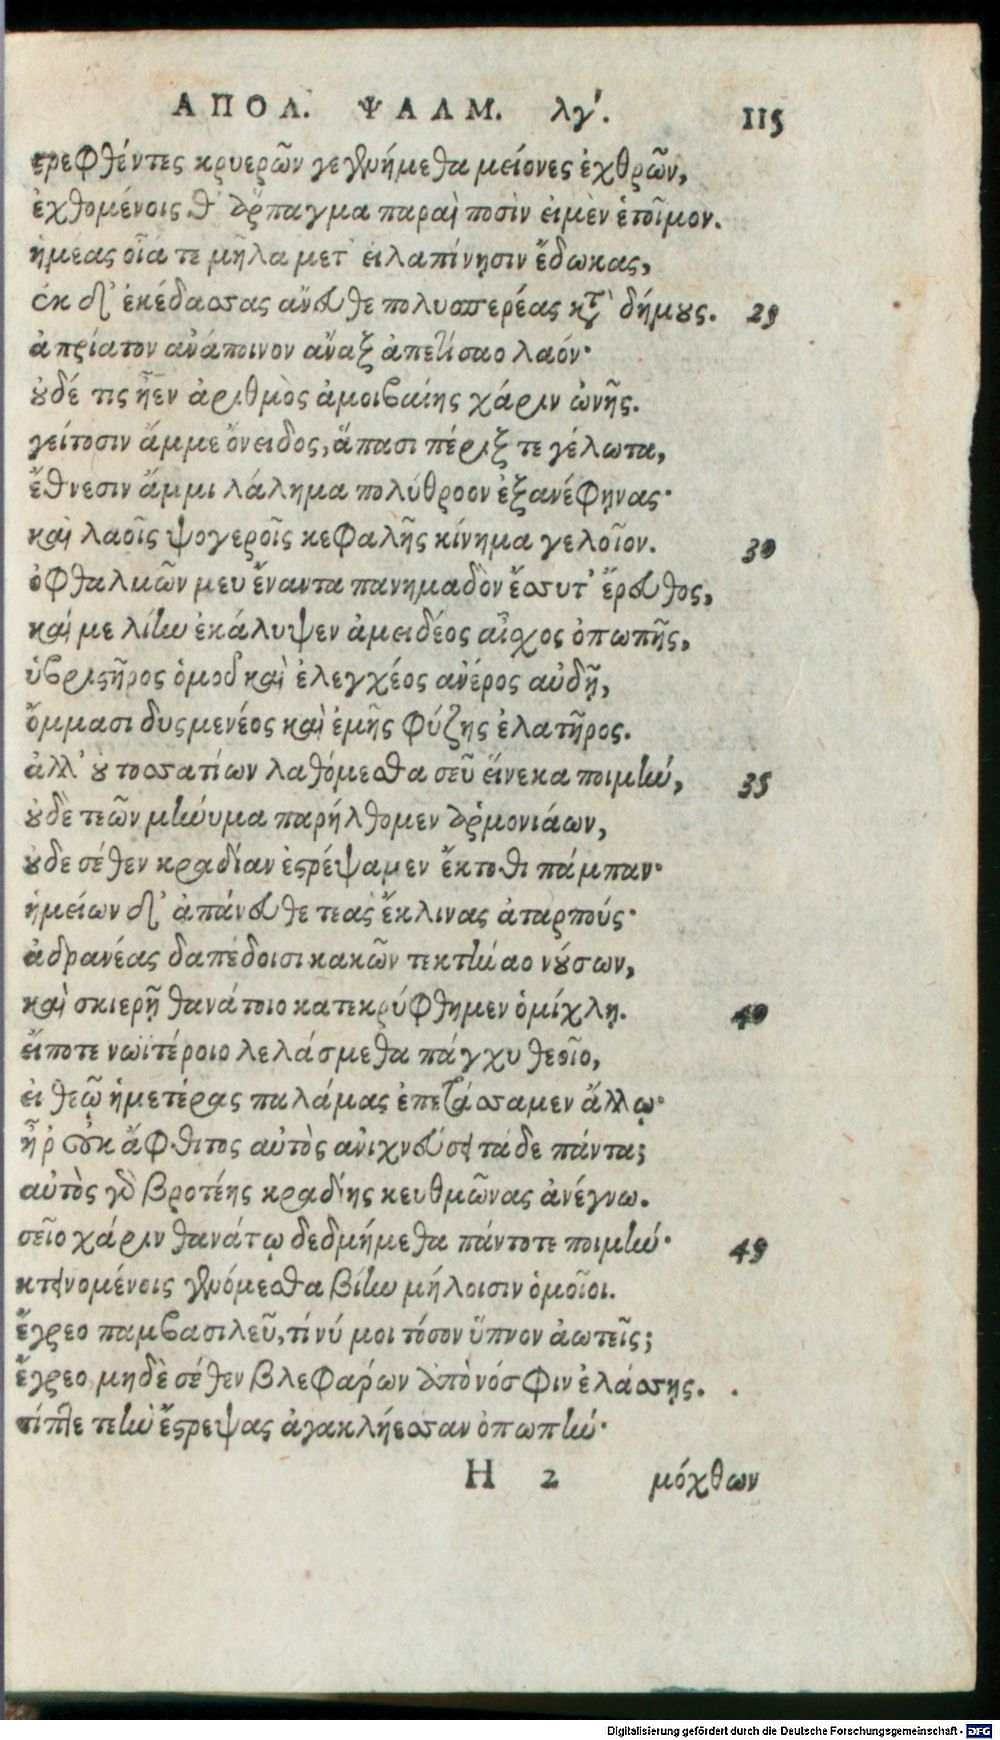 ΑΠΟΛ. ΨΑΛΜ. λγ'. 115
ςρεφθέντες κρυερῶν γεγενήμεθα μείονες ἐχθρῶν,
ἐχθομένοις θ' ἅρπαγμα παραὶ ποσὶν εἰμὲν ἑτοῖμον.
ἡμέας οἷά τε μῆλα μετ' εἰλαπίνῃσιν ἔδωκας,
ἐκ δ' ἐκέδασσας ἄνευθε πολυσπερέας κατὰ δήμους. 25
ἀπρίατον ἀνάποινον ἄναξ ἀπετίσαο λαόν·
οὐδέ τις ἦεν ἀριθμὸς ἀμοιβαίης χάριν ὠνῆς.
γείτοσιν ἄμμε ὄνειδος, ἅπασι πέριξ τε γέλωτα,
ἔθνεσιν ἄμμι λάλημα πολύθροον ἐξανέφηνας·
καὶ λαοῖς ψογεροῖς κεφαλῆς κίνημα γελοῖον. 30
ὀφθαλμῶν μευ ἔναντα πανημαδὸν ἔσσυτ' ἔρευθος,
καί με λίην ἐκάλυψεν ἀμειδέος αἶσχος ὀπωπῆς,
ὑβριστῆρος ὁμοῦ καὶ ἐλεγχέος ἀνέρος αὐδῇ,
ὄμμασι δυσμενέος καὶ ἐμῆς φύζης ἐλατῆρος.
ἀλλ' οὐ τοσσατίων λαθόμεσθα σεῦ εἵνεκα ποιμήν, 35
οὐδὲ τεῶν μήνυμα παρήλθομεν ἁρμονιάων,
οὐδε σέθεν κραδίαν ἐστρέψαμεν ἔκτοθι πάμπαν·
ἡμείων δ' ἀπάνευθε τεὰς ἔκλινας ἀταρπούς·
ἀδρανέας δαπέδοισι κακῶν τεκτήναο νούσων,
καὶ σκιερῇ θανάτοιο κατεκρύφθημεν ὁμίχλῃ. 40
εἴποτε νωϊτέροιο λελάσμεθα πάγχυ θεοῖο,
εἰ θεῷ ἡμετέρας παλάμας ἐπετάσσαμεν ἄλλῳ·
ἦ ῥ' οὐκ ἄφθιτος αὐτὸς ἀνιχνεύσει τάδε πάντα;
αὐτὸς γὰρ βροτέης κραδίης κευθμῶνας ἀνέγνω.
σεῖο χάριν θανάτῳ δεδμήμεθα πάντοτε ποιμήν· 45
κτεινομένοις γενόμεσθα βίην μήλοισιν ὁμοῖοι.
ἔγρεο παμβασιλεῦ, τί νύ μοι τόσον ὕπνον ἀωτεῖς;
ἔγρεο, μηδὲ σέθεν βλεφαρων ἀπὸ νόσφιν ἐλάσσῃς.
τίπτε τεὴν ἔστρεψας ἀγακλήεσσαν ὀπωπήν·
Η 2 μόχθων
Digitalisierung gefördert durch die Deutsche Forschungsgemeinschaft - DFG